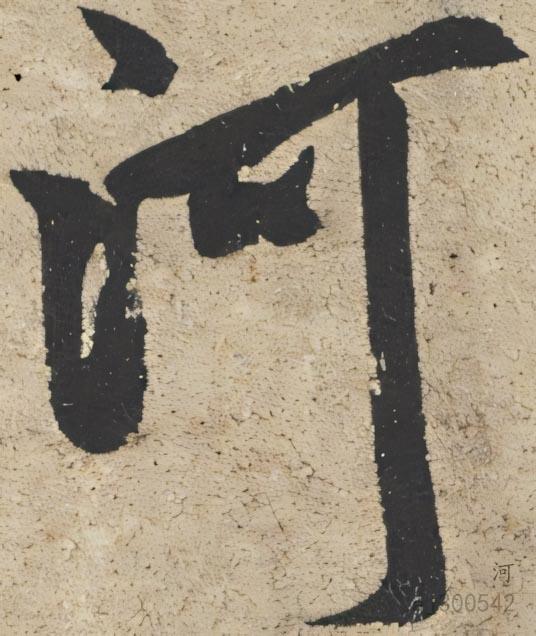 河
河
1300542